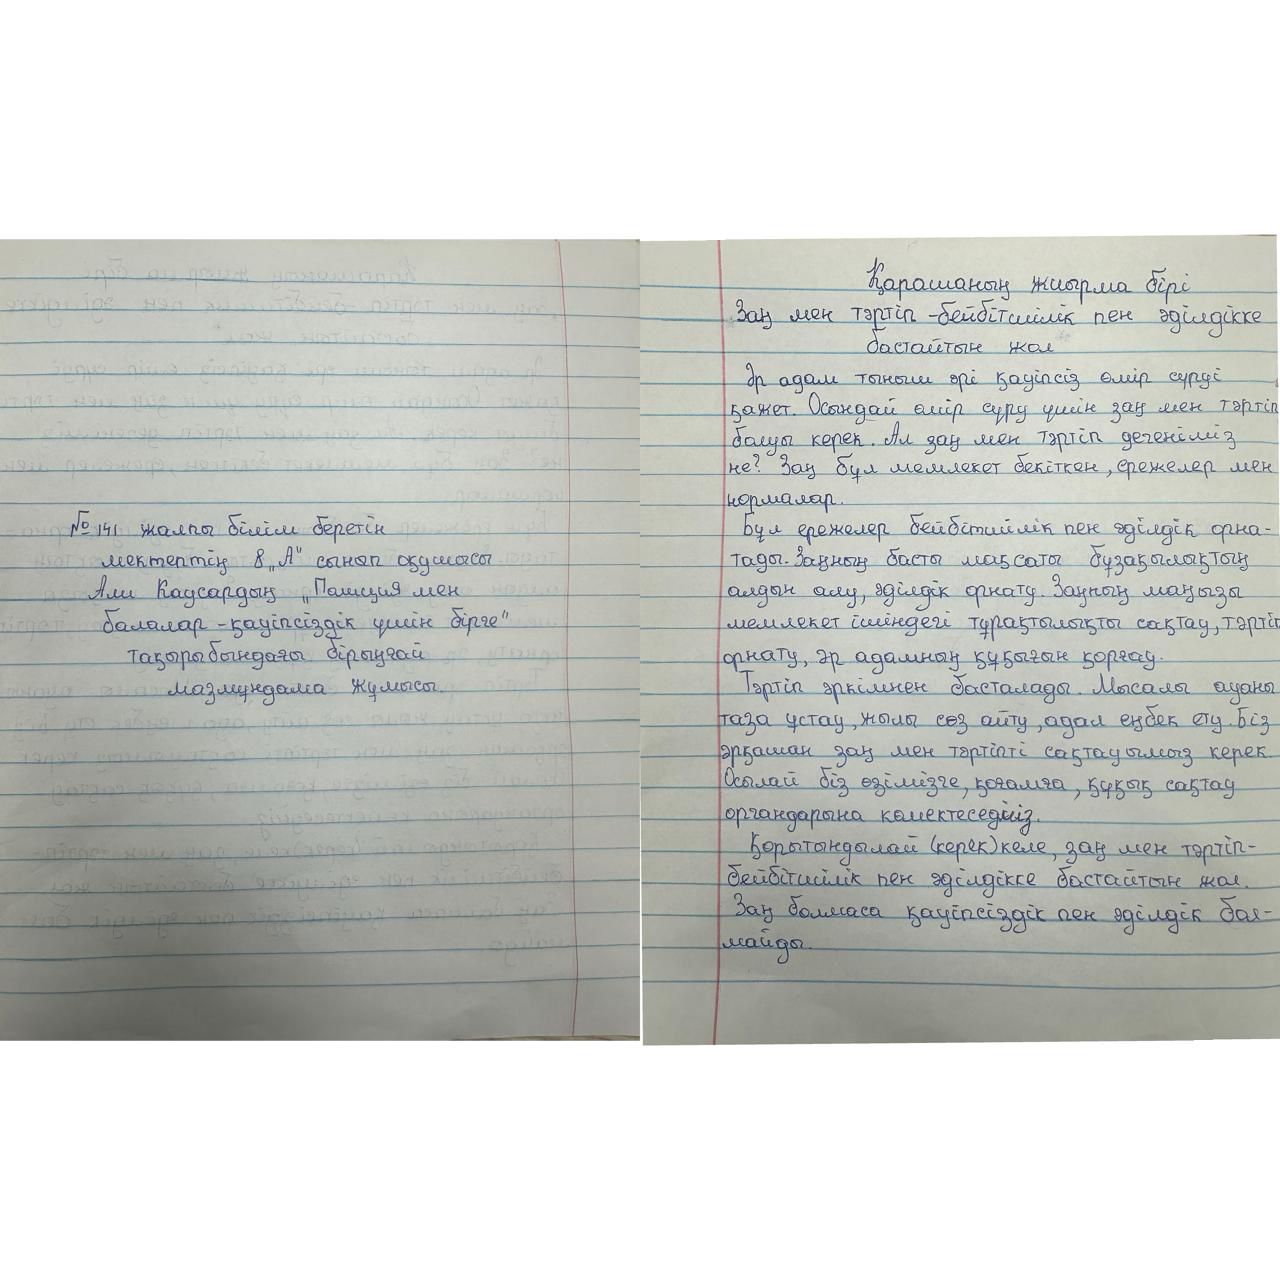 №141 жалпы білім беретін
мектептің 8 „А" сынап оқушысы
Али Каусардың „Полиция мен
балалар - қауіпсіздік үшін бірге"
тақырыбындағы бірыңғай
мазмұндама жұмысы.
Қарашаның жиырма бірі
Заң мен тәртіп - бейбітшілік пен әділдікке
бастайтын жол
Әр адам тыныш әрі қауіпсіз өмір сүруді
қажет. Осындай өмір сүру үшін заң мен тәртіп
болуы керек. Ал заң мен тәртіп дегеніміз
не? Заң бұл мемлекет бекіткен, ережелер мен
нормалар.
Бұл ережелер бейбітшілік пен әділдік орна-
тады. Заңның басты мақсаты бұзақылықтың
алдын алу, әділдік орнату. Заңның маңызы
мемлекет ішіндегі тұрақтылықты сақтау, тәртіп
орнату, әр адамның құқығын қорғау.
Тәртіп әркімнен басталады. Мысалы ауаны
таза ұстау, жылы сөз айту, адал еңбек ету. Біз
әрқашан заң мен тәртіпті сақтауымыз керек.
Осылай біз өзімізге, қоғамға, құқық сақтау
органдарына көмектесеміз.
Қорытындылай (керек) келе, заң мен тәртіп -
бейбітшілік пен әділдікке бастайтын жол.
Заң болмаса қауіпсіздік пен әділдік бол-
майды.